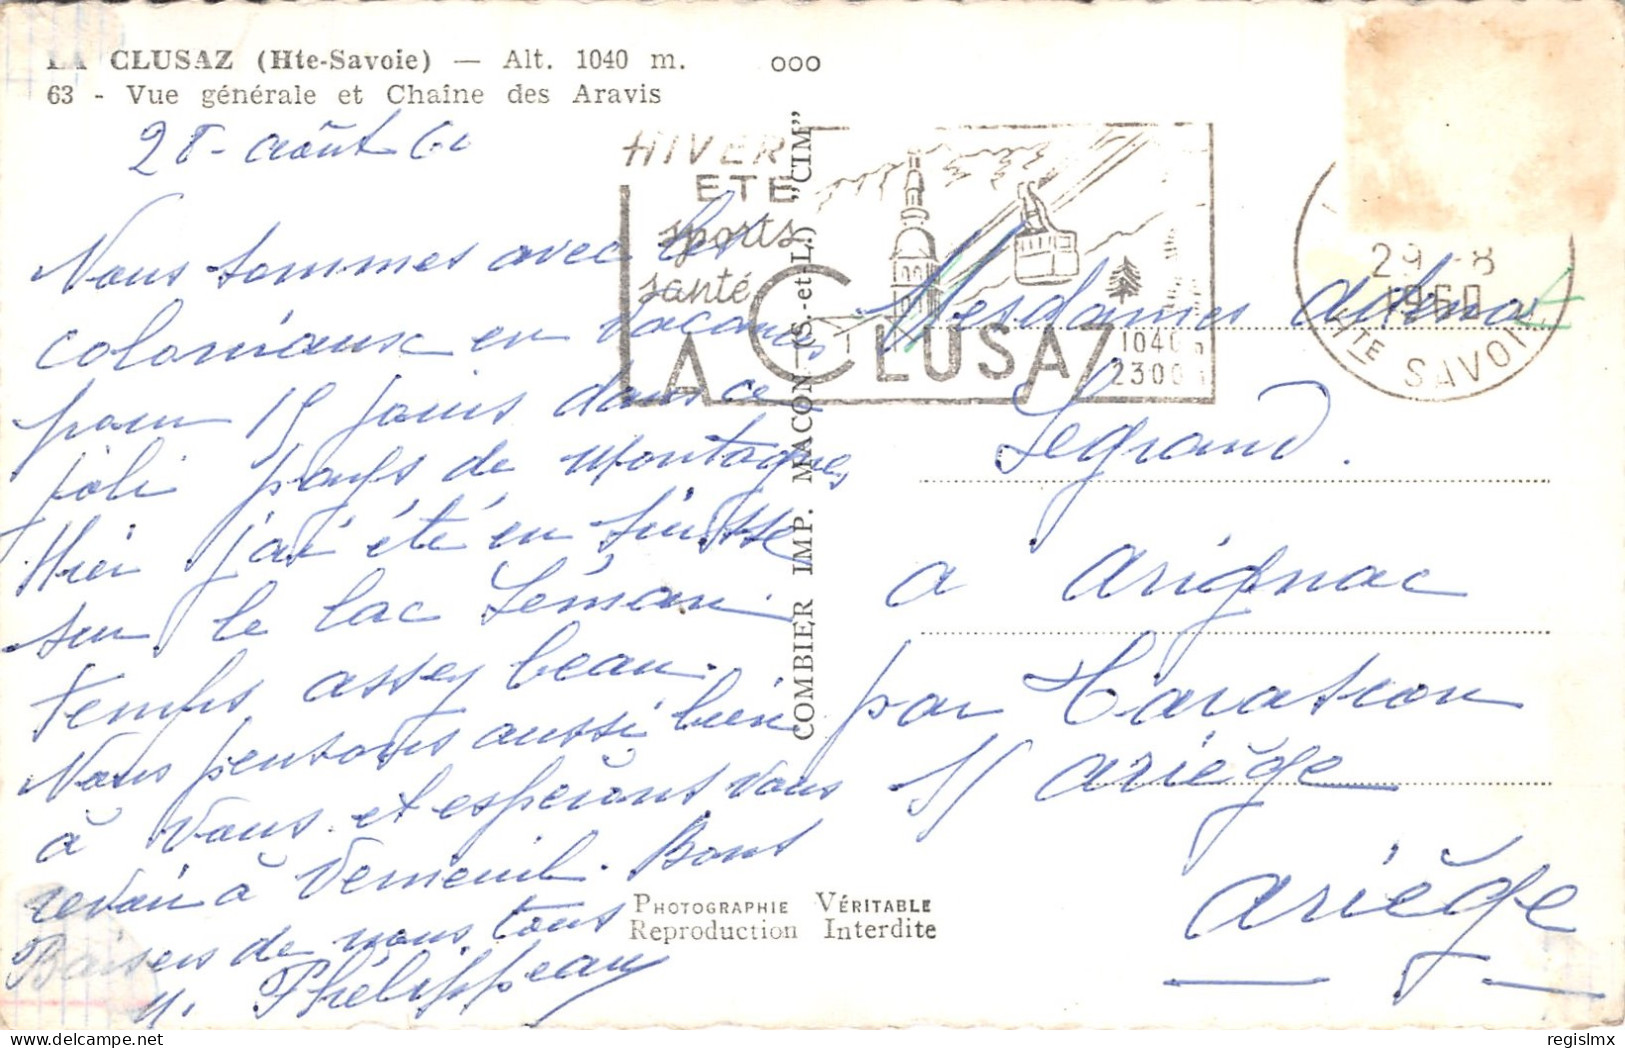 LA CLUSAZ (Hte-Savoie) — Alt. 1040 m. ooo
63 - Vue générale et Chaîne des Aravis
28 - août 60
Nous sommes avec les
coloniaux en vacances
pour 15 jours dans ce
joli pays de Montagnes
Hier j'ai été en suisse
sur le lac Léman.
temps assez beau.
Nous pensons aussi bien
à vous et espérons vous
revoir à Verneuil. Bons
Baisers de nous tous
Phélippeau
HIVER
ETÉ
sports
santé
LA CLUSAZ
1040 m
2300 m
29 - 8
1960
HTE SAVOIE
COMBIER IMP. MACON (S.-et-L.) "CIM"
Mesdames
Legrand.
a arignac
par Tarascon
s/ ariège
ariège
PHOTOGRAPHIE VÉRITABLE
Reproduction Interdite
regislmx